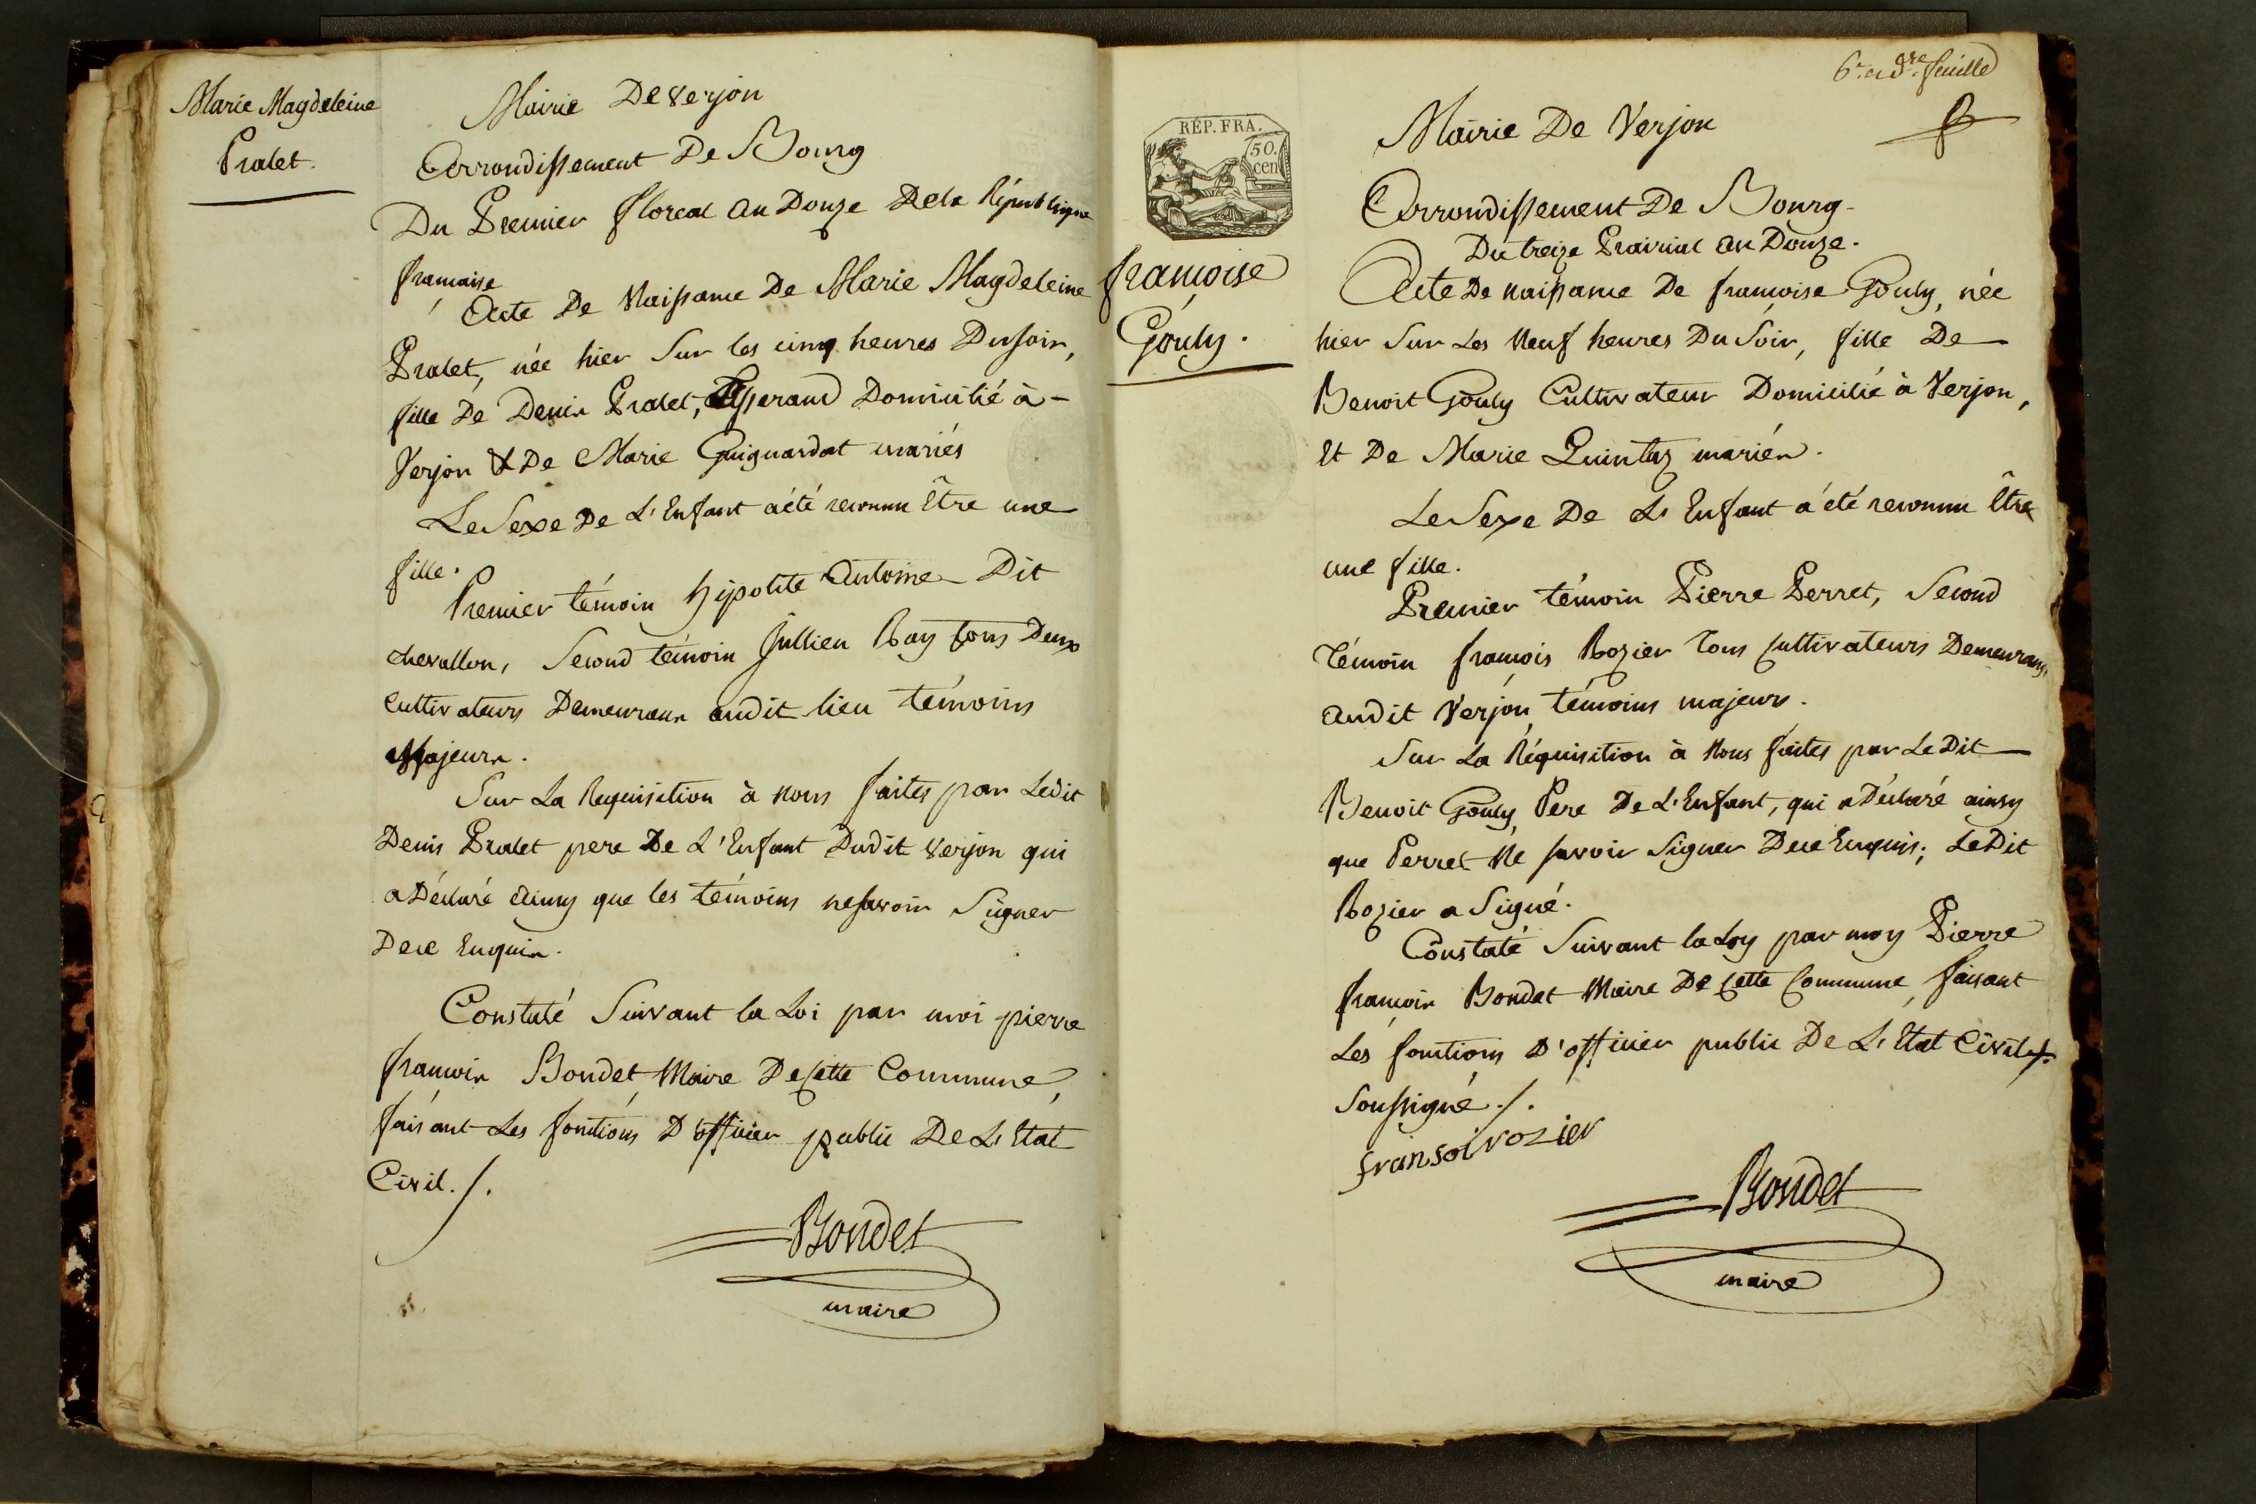 Marie Magdeleine
Pralet.
Mairie De Verjon
Arrondissement De Bourg
Du Premier floreal an Douze Dela République
francaise
Acte De Naissance De Marie Magdeleine
Pralet, née hier Sur les cinq heures Dusoir,
fille De Denis Pralet, Tisserand Domicilié à -
Verjon & De Marie Guignardat mariés
Le Sexe De L'Enfant a été reconnu Être une
fille.
Premier témoin hipolite Antoine Dit
chevallon, Second témoin Jullien Ray tous Deux
Cultivateurs Demeurans audit lieu témoins
Majeurs.
Sur La Requisition à nous faites par Ledit
Denis Pralet pere De L'Enfant Dudit Verjon qui
a Déclaré ainsy que les témoins ne savoir Signer
Dece Enquis.
Constaté Suivant la Loi par moi pierre
francois Bondet Maire De Cette Commune,
faisant Les fonctions D'officier public De L'Etat
Civil./.
Bondet
maire
6.e et d.re feuille
RÉP. FRA.
50.
cen
françoise
Gouly.
Mairie De Verjon
Arrondissement De Bourg-
Du treize Prairial an Douze.
Acte De naissance De francoise Gouly, née
hier Sur Les Neuf heures Du Soir, fille De
Benoit Gouly Cultivateur Domicilié à Verjon,
Et De Marie Quintaz mariés.
Le Sexe De L'Enfant a été reconnu Être
une fille.
Premier témoin Pierre Perret, Second
Témoin françois Rozier Tous Cultivateurs Demeurans,
audit Verjon témoins majeurs.
Sur La Réquisition à Nous faites par Le Dit
Benoit Gouly Pere De L'Enfant, qui a Déclaré ainsy
que Perret Ne savoir Signer Dece Enquis; Le Dit
Rozier a Signé.
Constaté Suivant la Loy par moy Pierre
francois Bondet Maire De Cette Commune, faisant
Les fonctions D'officier public De L'Etat Civil
Soussigné./.
fransoi rozier
Bondet
maire